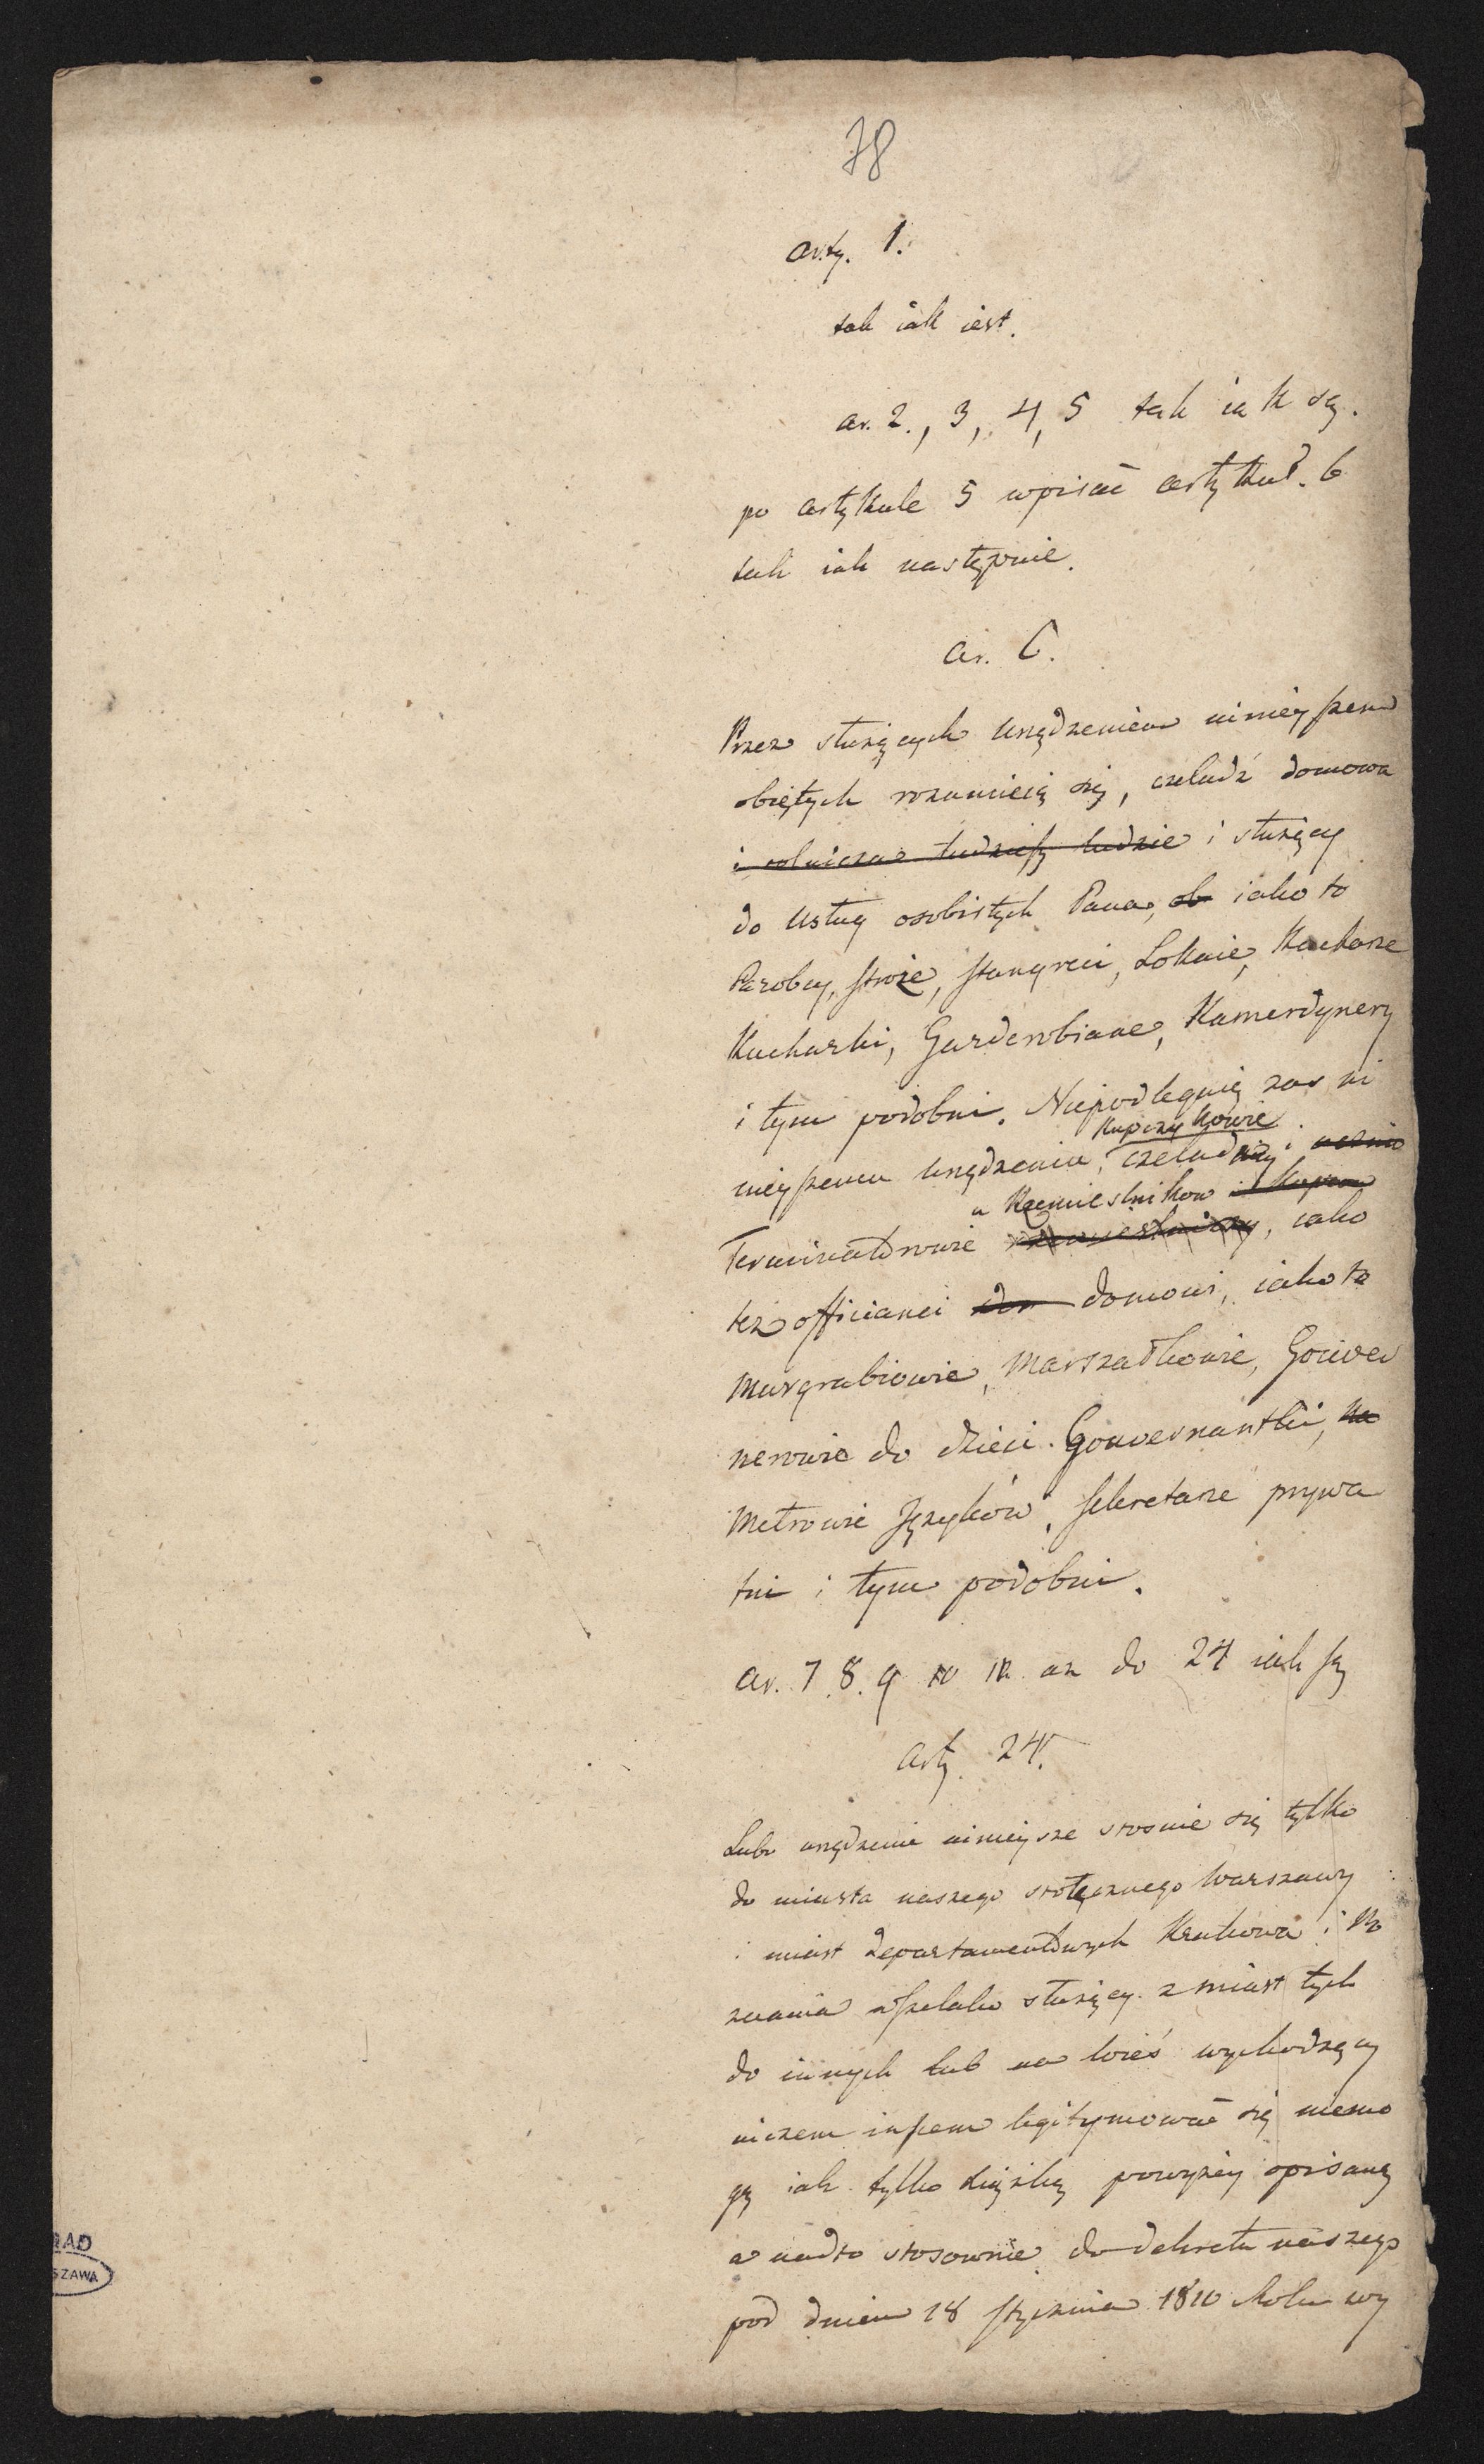 78
arty. 1.
tak iak iest.
ar. 2., 3, 4, 5 tak iak są.
po artykule 5 wpisać artykuł. 6
tak iak następuie.
ar. 6.
Przez służących urządzeniem ninieyszem
obiętych rozumieią się, czeladź domowa
i rolnicza tudzieysz ludzie i służący
do usług osobistych Pana, ob iako to
Parobcy, stroże, stangreci, Lokaie, Kucharze
Kucharki, Garderobiane, Kamerdynery
i tym podobni. Niepodlegaią zas ni
Kupczykowie
nieyszemu urządzeniu, czeladnicy i ucznio
u Rzemieslnikow i kupcow
Terminatorowie rzemieslniczy, iako
tez officianci dom domowi, iako to
Murgrabiowie, Marszałkowie, Gouver
nerowie do dzieci. Gouvernantki, na
Metrowie Języków, sekretarze prywa
tni i tym podobni.
ar. 7. 8. 9 10 11. az do 24 iak są
arty. 24.
Lubo urządzenie ninieysze stosuie się tylko
do miasta naszego stołecznego Warszawy
i miast departamentowych Krakowa i Po
znania wszelako służący z miast tych
do innych lub na wieś wychodzący
niczem inszem legitymować się niemo
gą iak tylko książką powyżey opisaną
a nadto stosownie do dekretu naszego
pod dniem 18 stycznia 1810 Roku wy
RAD
SZAWA